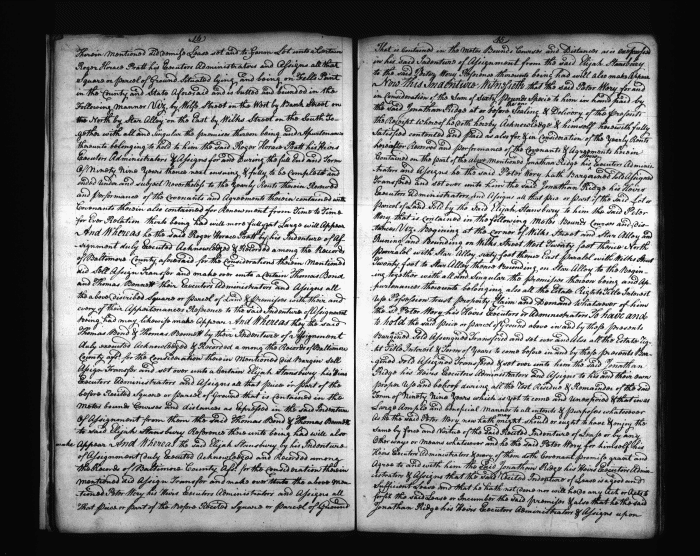 therein mentioned did demise Lease set and to Farm Let unto a Certain
Roger Horace Pratt his Executors Administrators and Assigns all that
Square or parcel of Ground Situated lying and being on Fells Point
in the County and State Aforesaid and is butted and bounded in the
Following Manner Viz by Wolfe Street on the West by Bank Street on
the North by Star Alley on the East by Wilks Street on the South To
gether with all and Singular the premises thereon being and Apurtenances
thereunto belonging to hold to him the said Roger Horace Pratt his Heirs
Executors Administrators & Assigns for and During the full End and Term
of Ninety Nine Years thence next ensuing & fully to be Compleat and
ended under and subject Nevertheless to the Yearly Rents therein Reserved
and performance of the Covenants and Agreements therein contained with
Covenants therein also contained for Renewment from Time to Time
for Ever Relation thereto being had will more fully & at Large will Appear
And Whereas he the said Roger Horace Pratt by his Indenture of As-
signment duly Executed Acknowledged & Recorded among the Records
of Baltimore County aforesaid for the Considerations therein Mentioned
did Sell Assign Transfer and make over unto a Certain Thomas Bond
and Thomas Bennett their Executors Administrators and Assigns all
the above described Square or parcel of Land & Premises with their and
every of their Appurtenances Reference to the said Indenture of Assignment
being had may likewise make Appear And Whereas they the said
Thomas Bond & Thomas Bennett by their Indenture of Assignment
duly executed Acknowledged & Recorded among the Records of Baltimore
County afsd. for the Consideration therein Mentioned did Bargain Sell
Assign Transfer and set over unto a Certain Elijah Stansbury his Heirs
Executors Administrators and Assigns all that piece or part of the
before Recited Square or parcel of Ground that is Contained in the
Metes bounds Courses and distances as Expressed in the said Indenture
of Assignment from them the said Thomas Bond & Thomas Bennett
to said Elijah Stansbury Reference thereunto being had will also
make Appear And Whereas the said Elijah Stansbury by his Indenture
of Assignment duly Executed Acknowledged and Recorded among
the Records of Baltimore County afsd. for the Considerations therein
Mentioned did Assign Transfer and make over unto the above men
tioned Peter Hory his Heirs Executors Administrators and Assigns all
that piece or part of the Before Recited Square or parcel of Ground
that is contained in the Metes Bounds Courses and Distances as is expressed
in his said Indenture of Assignment from the said Elijah Stansbury
to the said Peter Hory Reference thereunto being had will also make Appear
Now This Indenture Witnesseth that the said Peter Hory for and
in Consideration of the Sum of Sixty Pounds Specie to him in hand paid by
the said Jonathan Ridge at or before the Sealing & Delivery of these presents
the Receipt whereof he doth hereby Acknowledge & himself therewith fully
Satisfied contented and paid as also for & in Consideration of the Yearly Rents
hereafter Reserved and performance of the Covenants & Agreements herein
Contained on the part of the above mentioned Jonathan Ridge his Executors Adminis
trators and Assigns he the said Peter Hory hath Bargained Sold Assigned
Transfered and set over unto him the said Jonathan Ridge his Heirs
Executors Administrators and Assigns all that piece or part of the said Lot or
parcel of Land Sold by the said Elijah Stansbury to him the said Peter
Hory that is contained in the following Metes Bounds Courses and Dis-
tances Viz Begining at the Corner of Wilks Street and Star Alley and
Running and Bounding on Wilks Street West Twenty feet thence North
paralel with Star Alley sixty feet thence East paralel with Wilks Street
Twenty feet to Star Alley thence Bounding on Star Alley to the Begin-
ning together with all and Singular the premises thereon being and Ap-
purtenances thereunto belonging also all the Estate Right Title Interest
Use Possession trust Property Claim and Demand Whatsoever of him
the sd Peter Hory his Heirs Executors or Administrators To have and
to hold the said piece or parcel of Ground above in and by these presents
Bargained Sold Assigned Transfered and set over and also all the Estate Rig-
ht Title Interest & Term of Years to come before in and by these presents Bar-
gained Sold Assigned Transfered & set over unto him the said Jonathan
Ridge his Heirs Executors Administrators and Assigns to his and their own
proper Use and behoof during all the Rest Residue & Remainder of the said
Term of Ninety Nine Years which is yet to come and Unexpired & that in as
Large Ample and Beneficial Manner to all intents & purposes whatsoever
as he the said Peter Hory now hath might should or ought to have & enjoy the
same by force and Virtue of the said Recited Indenture of Lease or by any
Other ways or means whatsoever and he the said Peter Hory for himself his
Heirs Executors Administrators & every of them doth Covenant promise grant and
Agree to and with him the said Jonathan Ridge his Heirs Executors Admin
istrators & Assigns that the said Recited Indenture of Lease is a good and
Sufficient Lease and that he hath not done nor will he do any Act or Acts to
forfit the said Lease or Incumber the said premises & also that he the said
Jonathan Ridge his Heirs Executors Administrators & Assigns upon